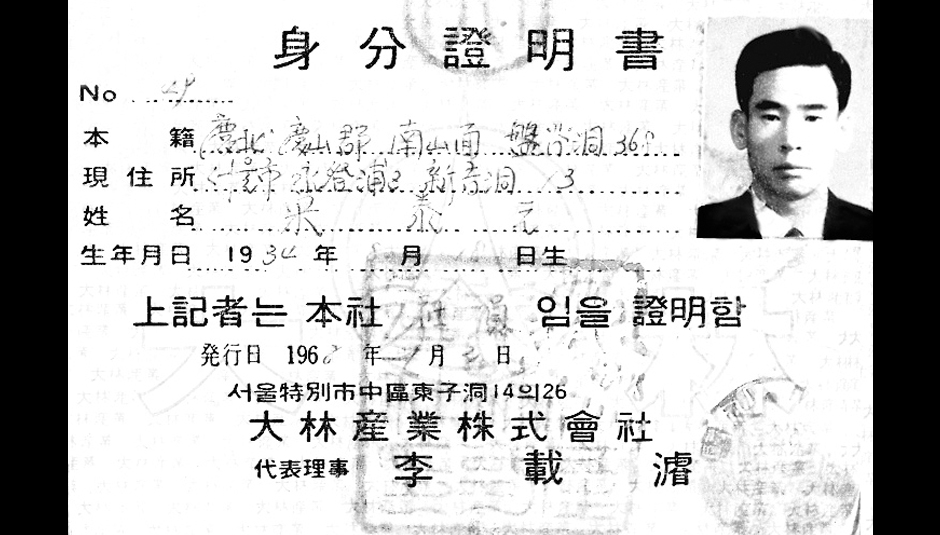 身分證明書
No
本籍 慶北 慶山郡 南山面 盤谷洞 36
現住所 永登浦 新吉洞 13
姓名 泰元
生年月日 1934年 月 日生
上記者는 本社 職員 임을 證明함
発行日 196 年 月 日
서울特別市中區東子洞14의26
大林産業株式會社
代表理事 李載濬